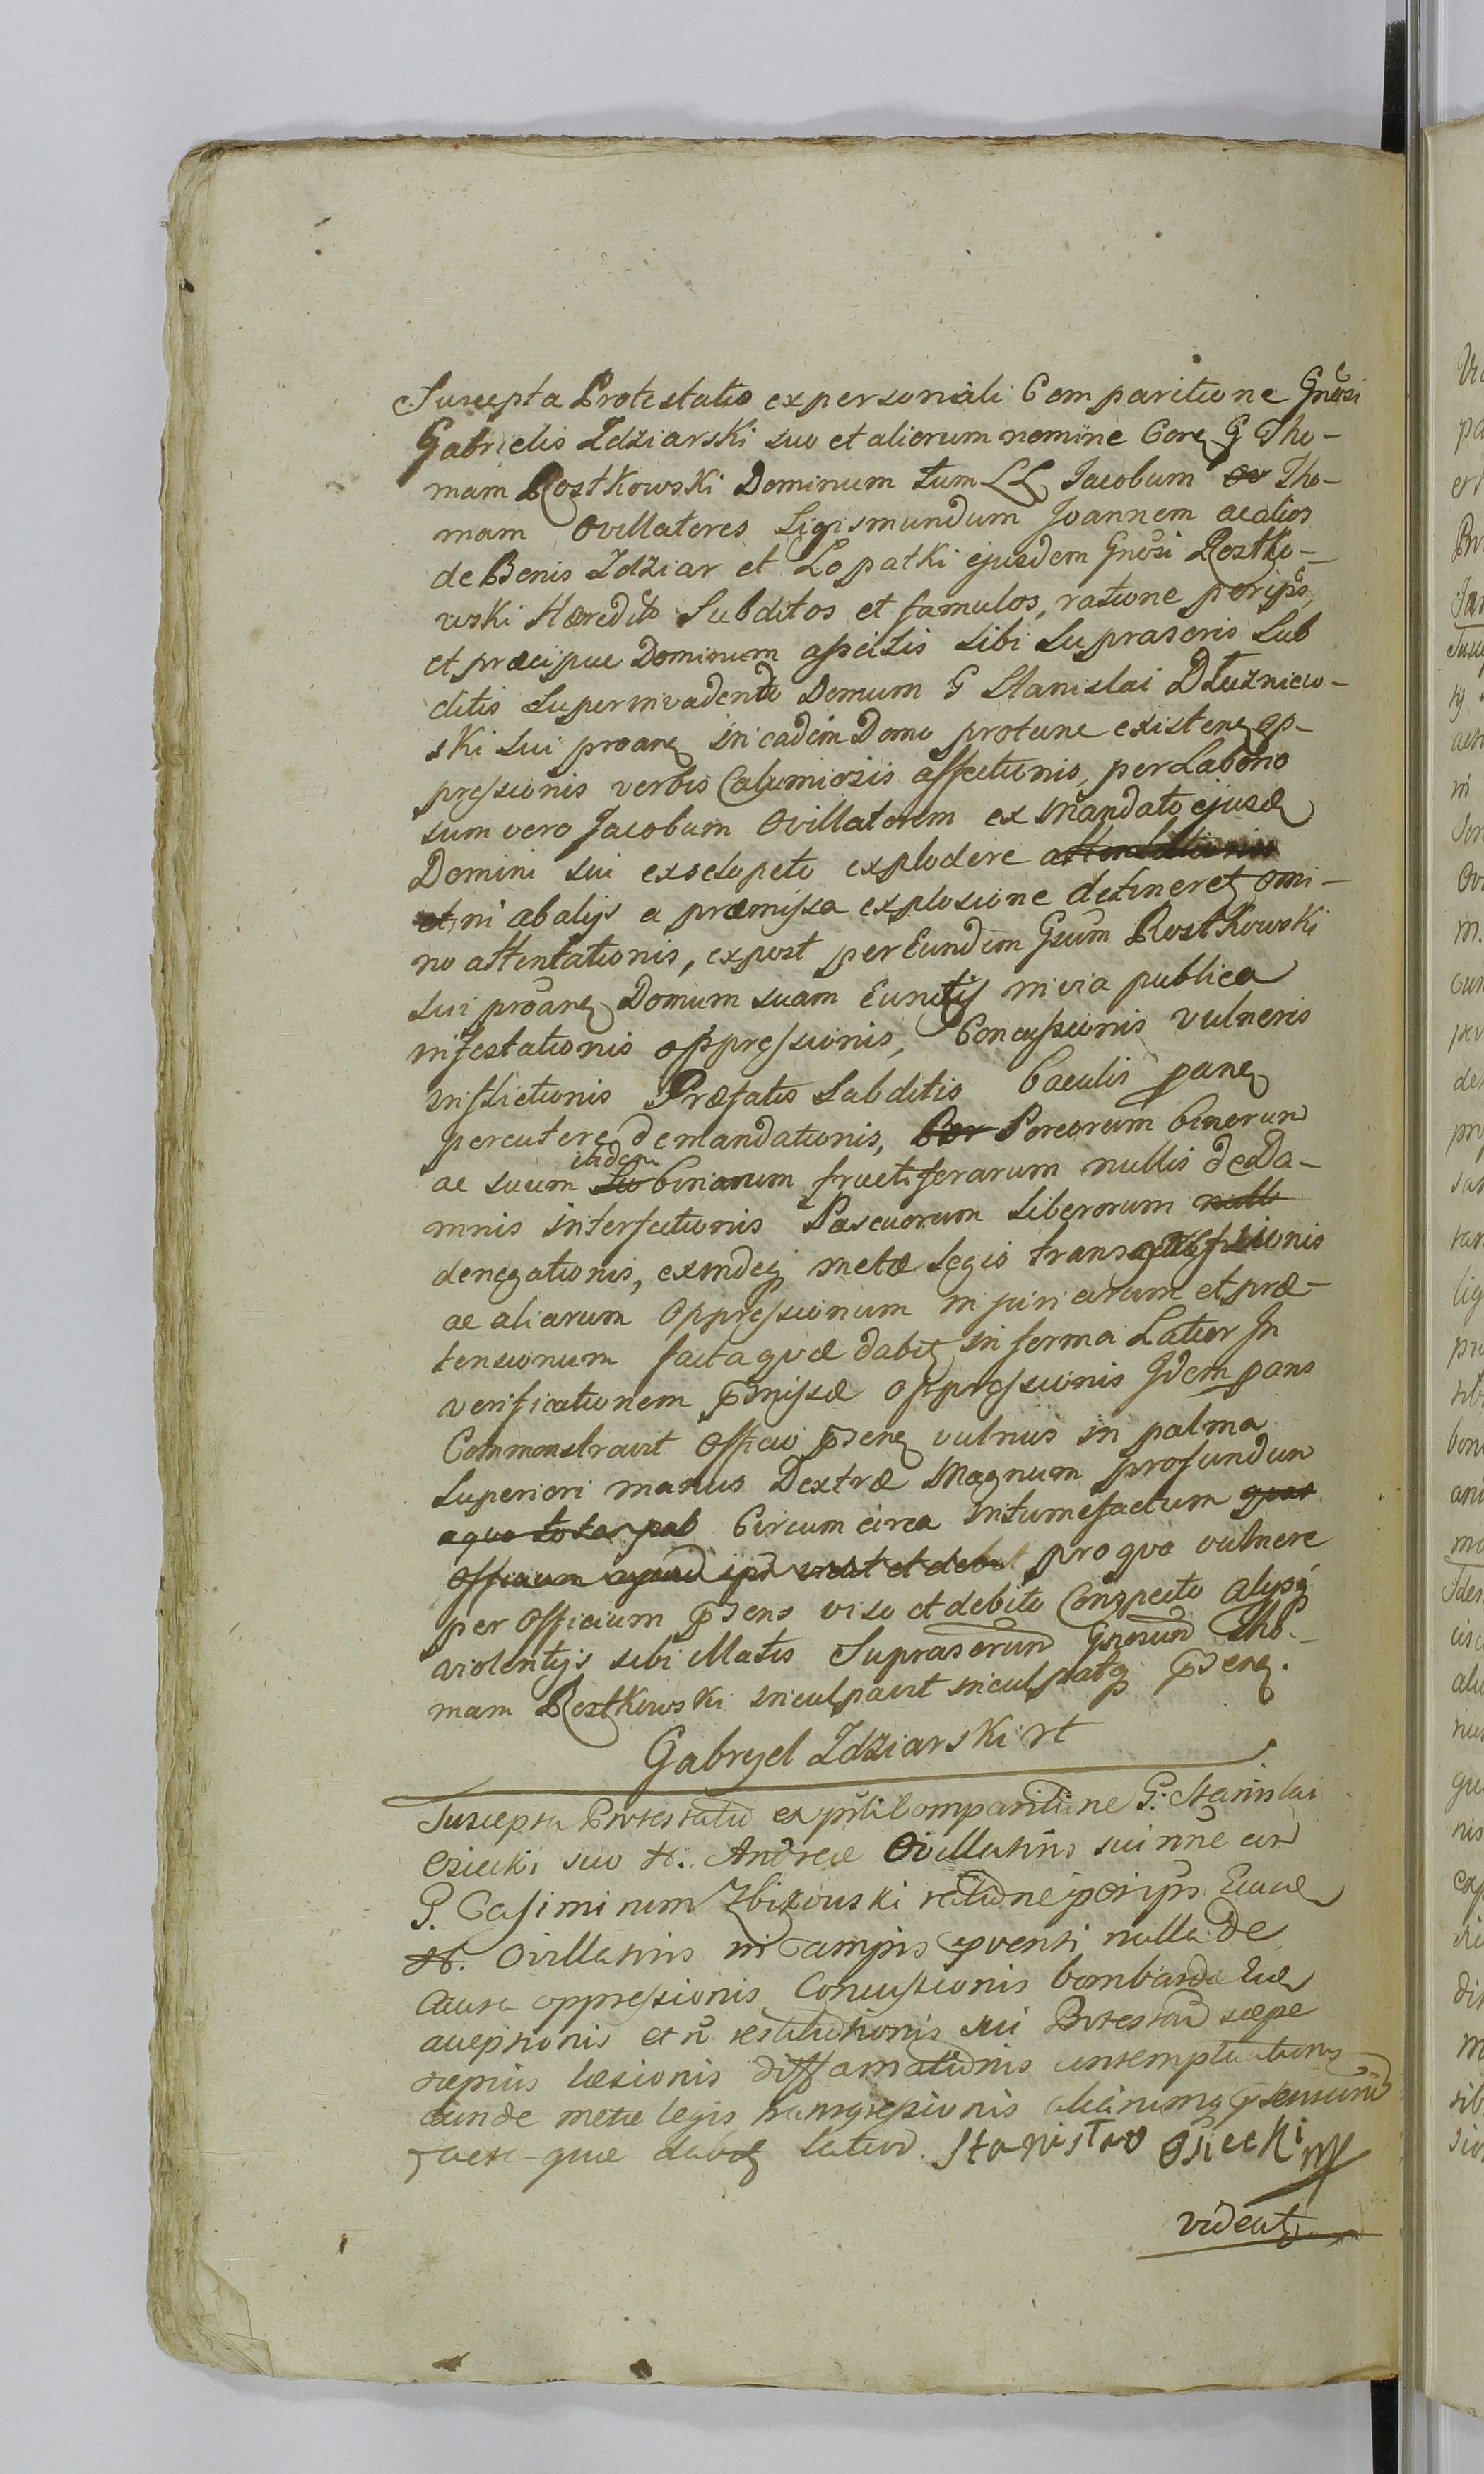 Suscepta Protestatio ex personali Comparitione Gnosi
Gabrielis Idziarski suo et aliorum nomine Core G Tho-
mam Rostkowski Dominum tum LL Jacobum Tho-
mam Ovillatores Sigismundum Joannem ac alios
de Bonis Idziar et Lopatki ejusdem Gnosi Rostko-
wski Hæredit Subditos et famulos, ratione per ipsos
et præcipue Dominum ascitis sibi suprascris Sub
ditis superinvadendo Domum G Stanislai Dłuzniew-
ski sui proane in eadem Domo protunc existene op-
pressionis verbis Calumiosis affectionis, per Laborio
sum vero Jacobum Ovillatorem ex Mandato ejusd
Domini sui ex sclopeto explodere attentationis
et ni ab alijs a præmissa explosione detineret omi-
no attentationis, ex post per Eundem Gsum Rostkowski
sui proane Domum suam Euntis in via publica
infestationis oppressionis, Concussionis vulneris
inflictionis Præfatis Subditis baculis pane
percutere demandationis, Por Porcorum binorum
ac suum itidem binarum fructiferarum nullis de Da-
mnis interfectionis Pascuorum liberorum null
denegationis, exindeq metæ legis transgressionis
ac aliarum oppressionum injuriarum et præ-
tensionum facta quæ dabit in forma Latior In
verificationem pmissæ oppressionis Idem pans
Commonstravit Officio psene vulnus in palma
Superiori manus Dextræ Magnum profundum
a quo tota pal Circum circa intumefactum quas
Officium apud ips vidit et debit pro quo vulnere
per Officium psens viso et debito Conspecto alysq
violentijs sibi illatis Suprascrum Gnosum Tho-
mam Rostkowski inculpavit inculpatq psene.
Gabryel Idziarski rt
Suscepta Protestatio ex psnli Comparitione G. Stanislai
Osiecki suo et H. Andreæ Ovillatoris sui nne cor
G. Casimirum Zbikowski ratione per ipsum
H. Ovillatoris in Campis nulla de
Causa oppressionis Concussionis bombardæ
acceptionis et n restitutionis sui Protestan sæpe
sæpius læsionis diffamationis contemptuationis
eunde metæ legis transgressionis aliarumq
quæ dabit latior. Stanisław Osiecki mp
videat